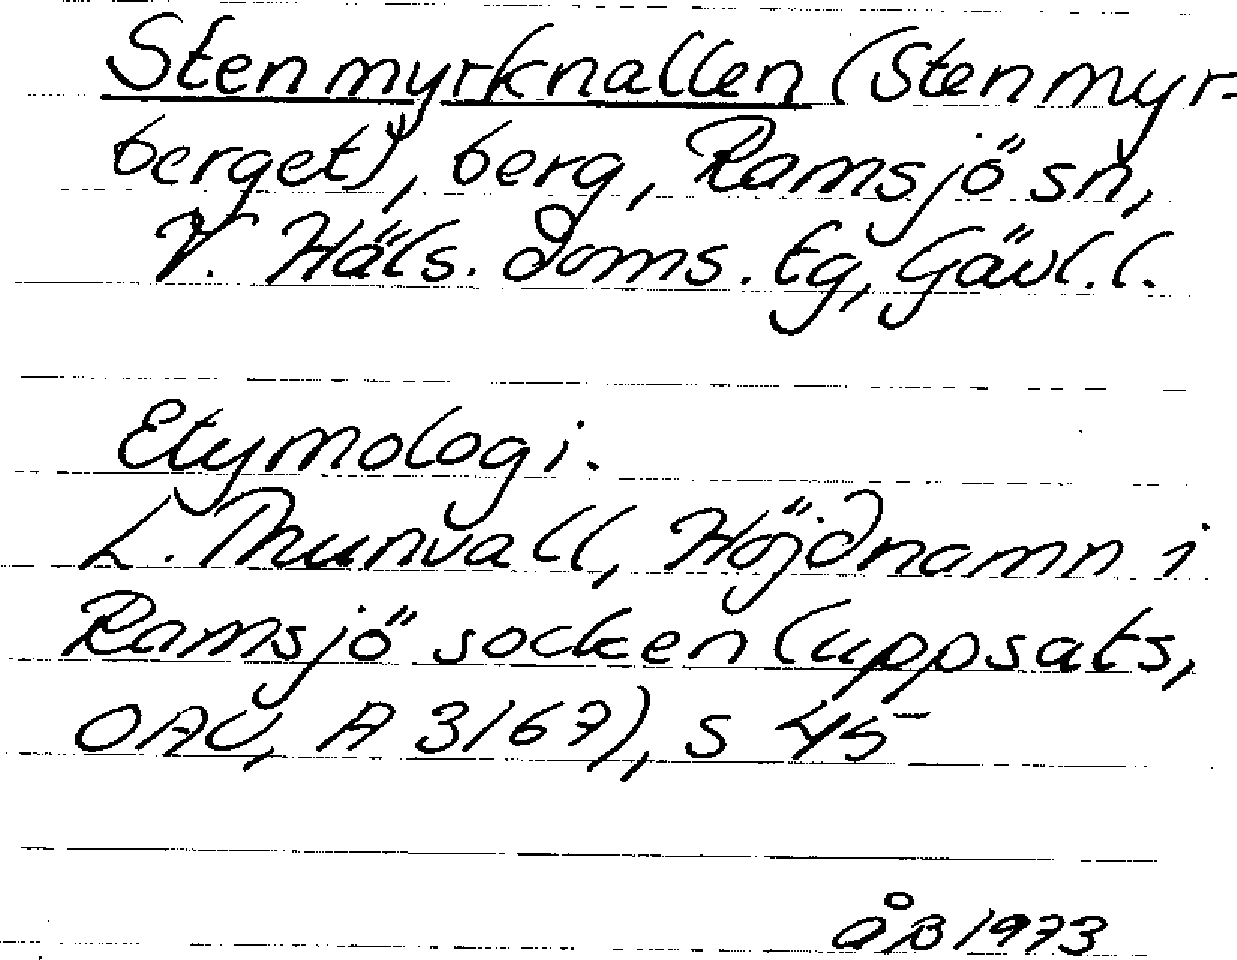 Stenmyrknallen (Stenmyr-
berget), berg, Ramsjö sn,
V. Häls. doms. tg, Gävl.l.
Etymologi.
L. Thunvall, Höjdnamn i
Ramsjö socken (uppsats,
OAU, A 3167), s 45
åB 1973